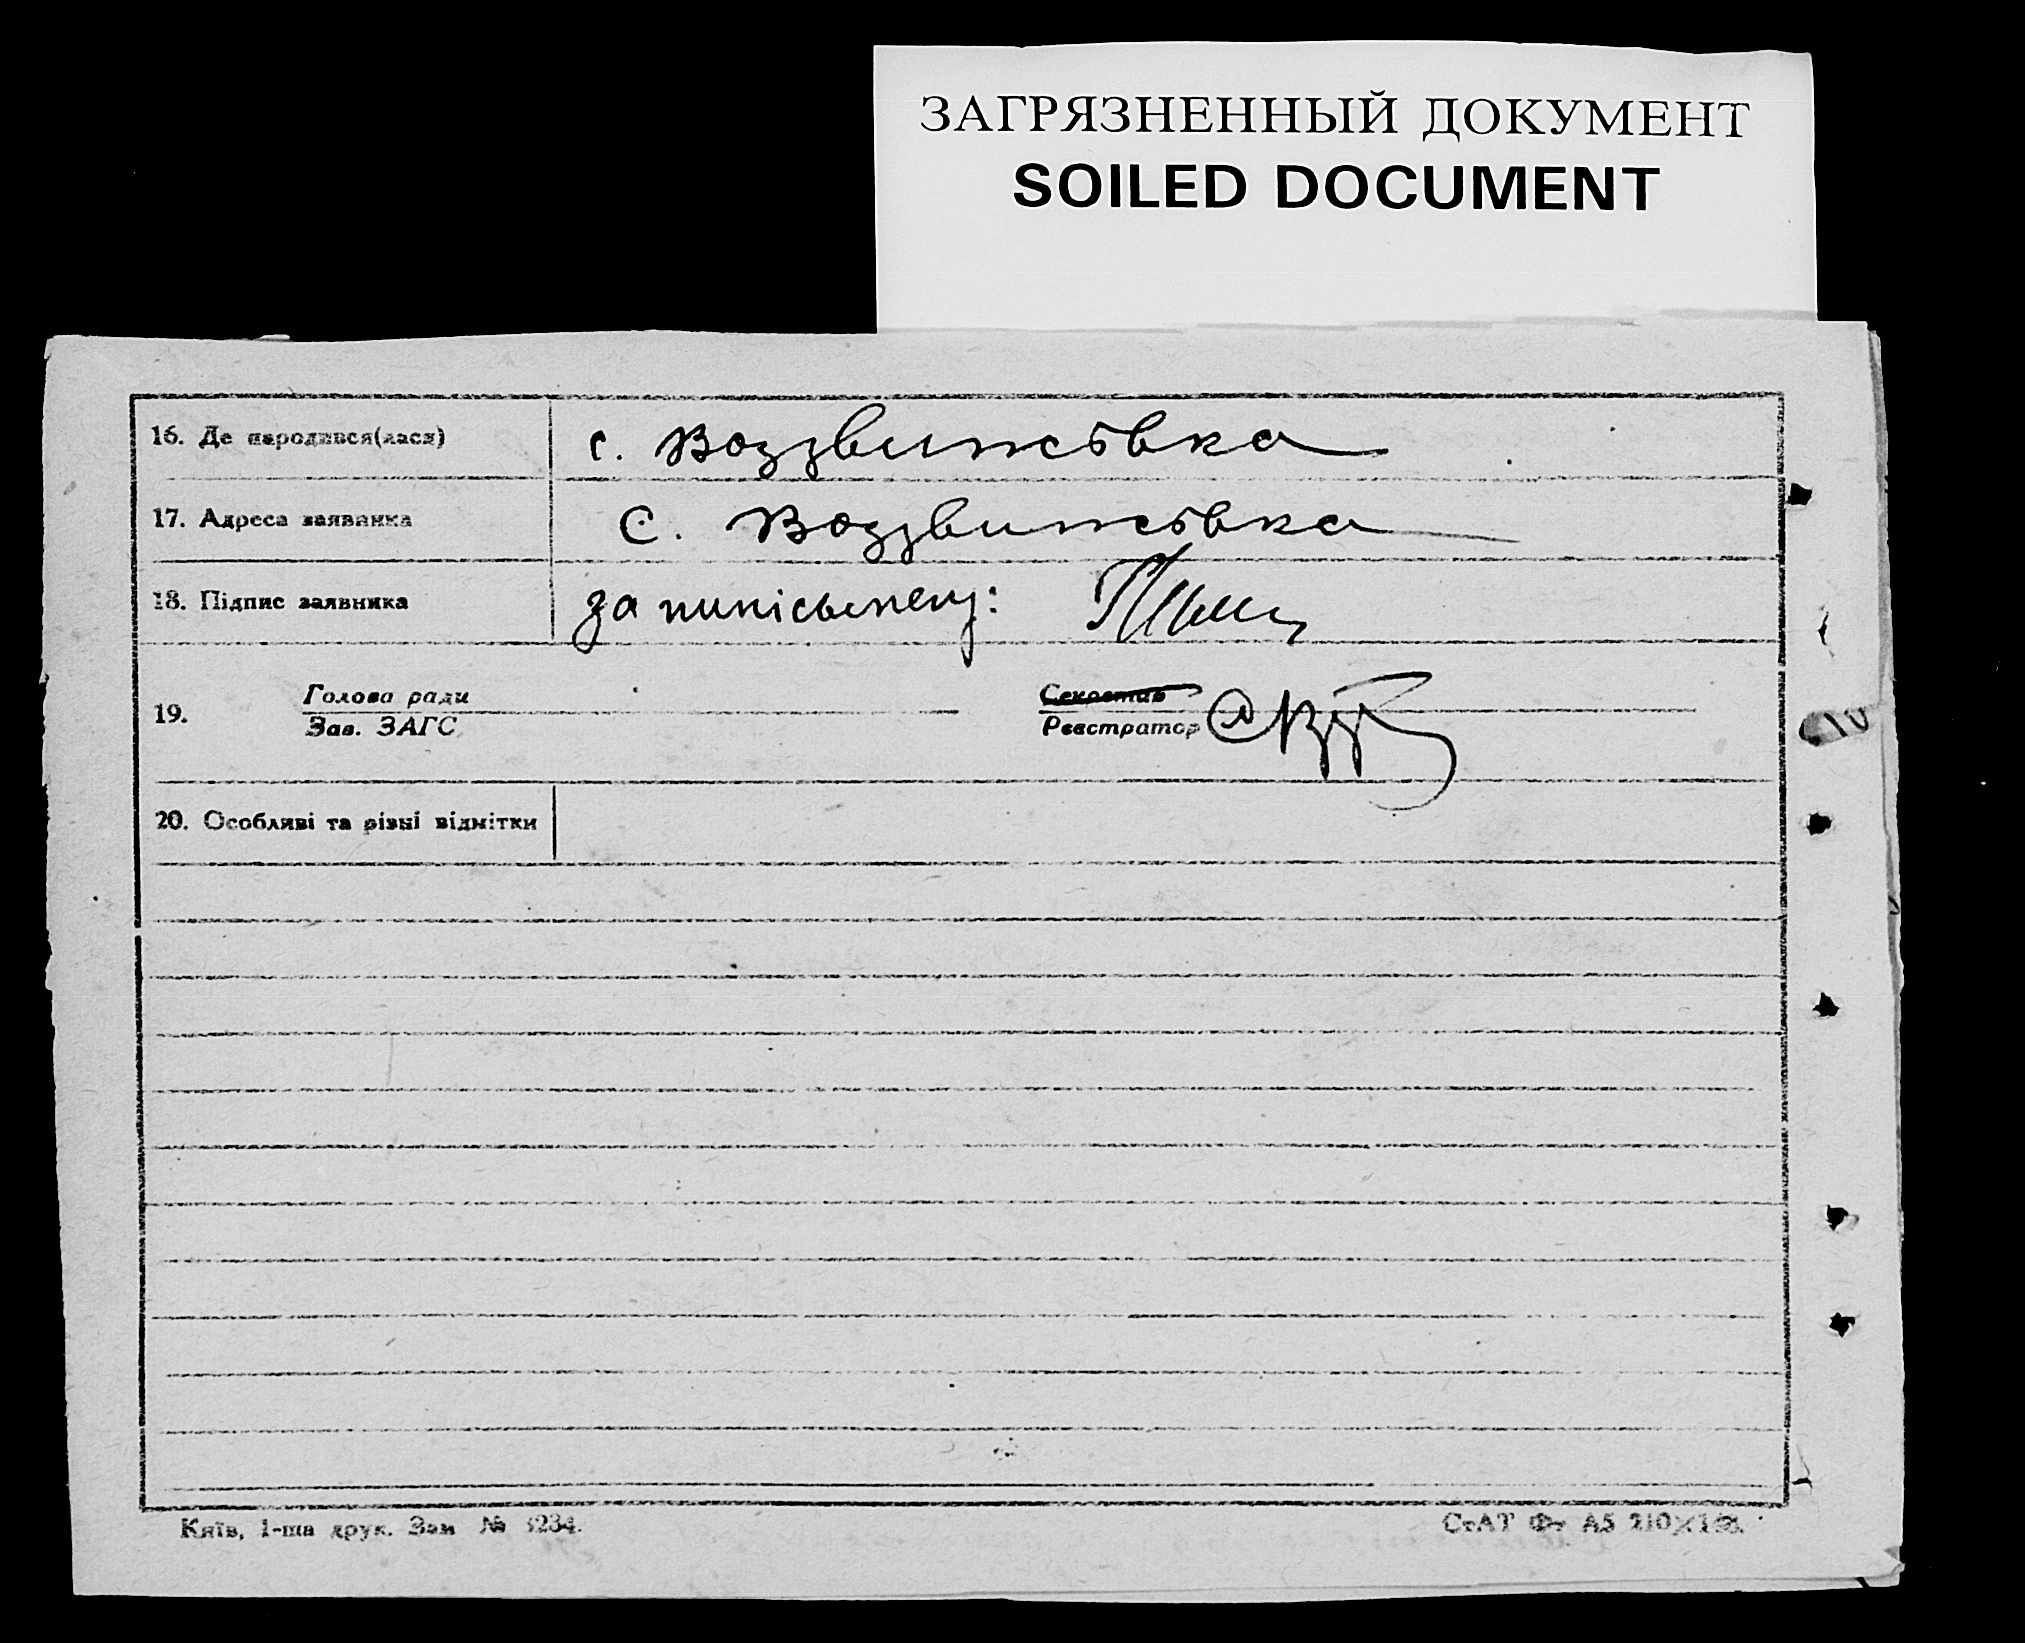 ЗАГРЯЗНЕННЫЙ ДОКУМЕНТ
SOILED DOCUMENT
16. Де народився(лася) с. Воздвижівка
17. Адреса заявника С. Воздвижівка
18. Підпис заявника за
19. Голова ради Секретар
Зав. ЗАГС Реєстратор
20. Особливі та різні відмітки
Київ, 1-ша друк. Зам №
СтАТ Фт А5